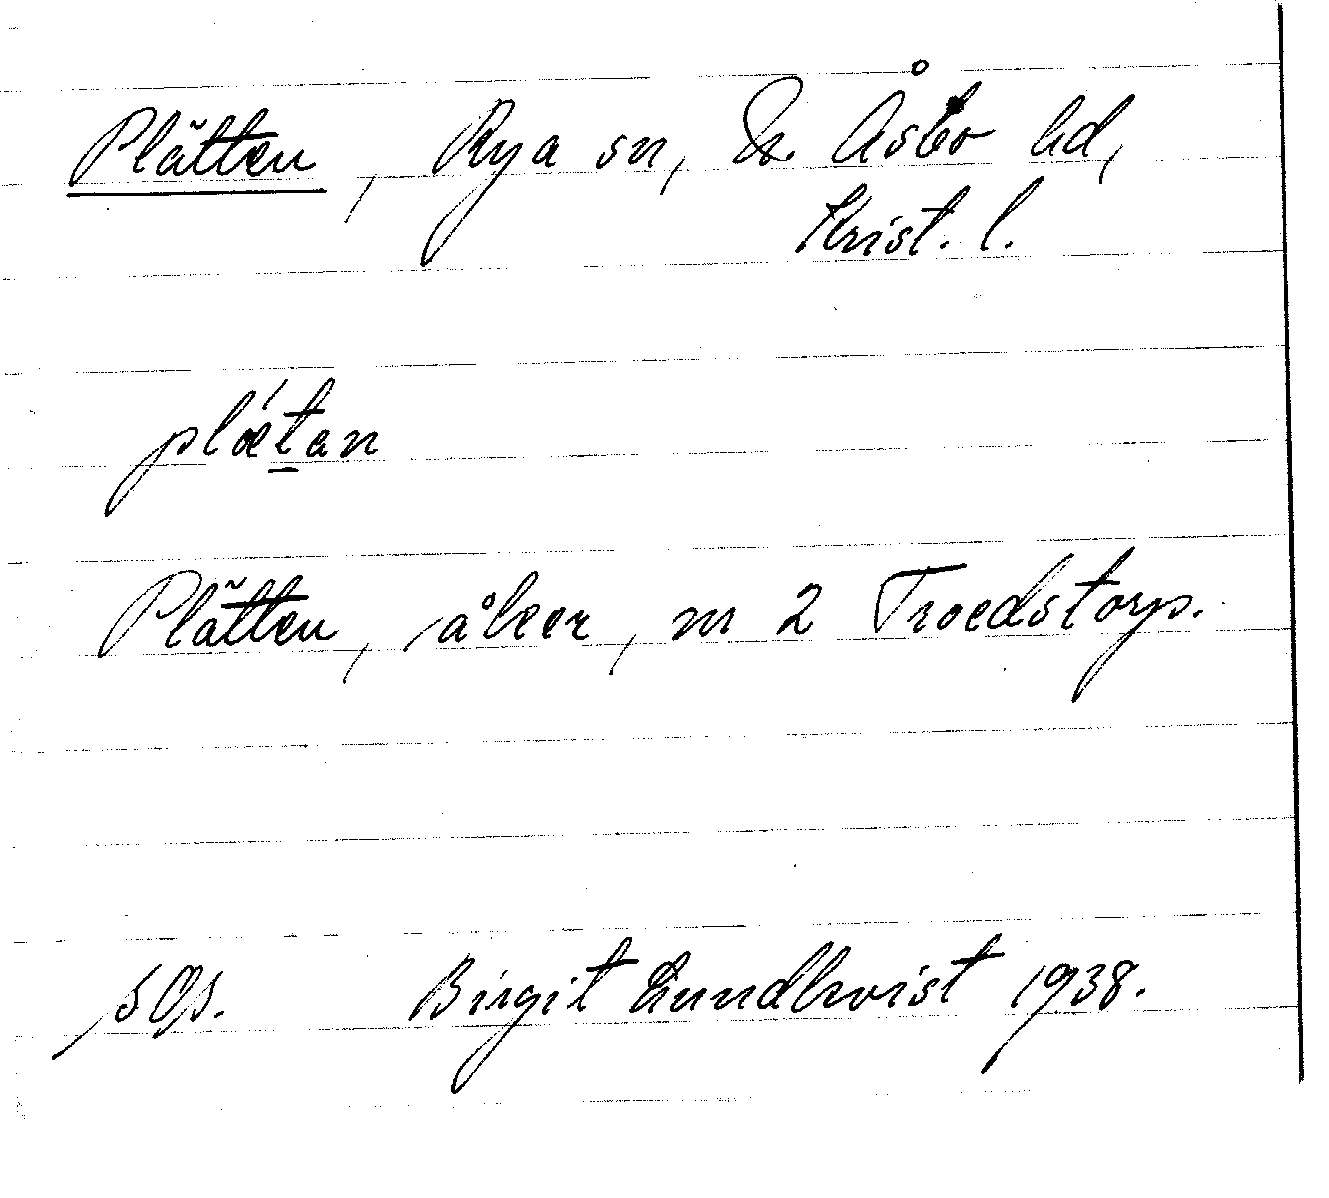 Plätten, Rya sn, N. Åsbo hd,
Krist. l.
plǽtan
Plätten, åker, nr 2 Troedstorp.
sOp. Birgit Lundkvist 1938.